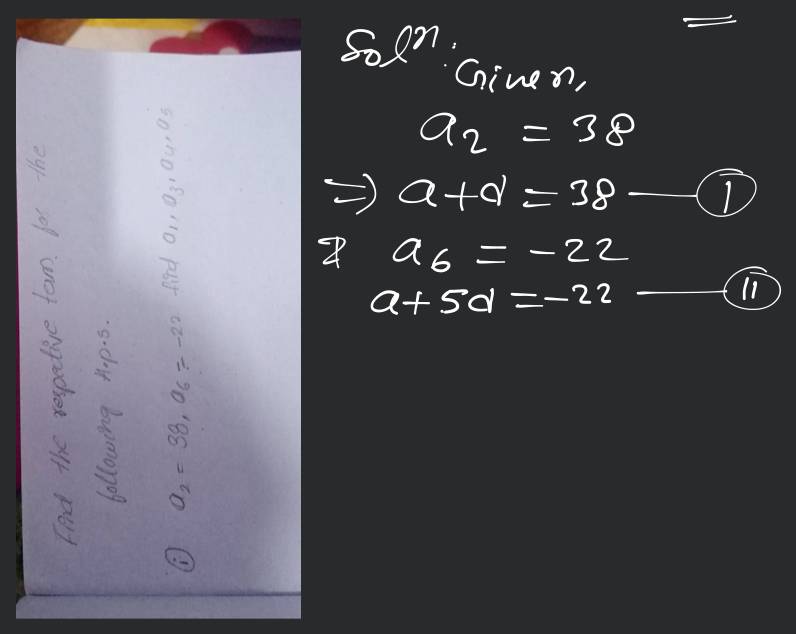 Find the respative term for the
following A.p.s.
(i) a₂ = 38, a₆ = -22 find a₁, a₃, a₄, a₅
Solⁿ: Given,
a₂ = 38
=> a+d = 38 — (I)
& a₆ = -22
a+5d = -22 — (II)